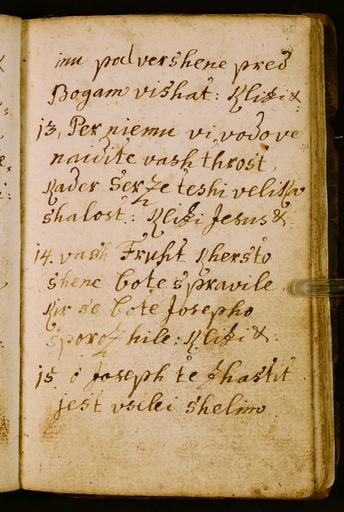 imu padvershene pred
Bogam vishat: Klizi &
13, Per niemu vi vodove
naidite vash throst
Kader Serze teshi velika
shalost: Klizi Jesus &.
14. vash Fruht Khersto
shene bote spravile
Kir se bote Josepho
sporozhile: Klizi &.
15 o Joseph te zhastit
jest vselei shelimo